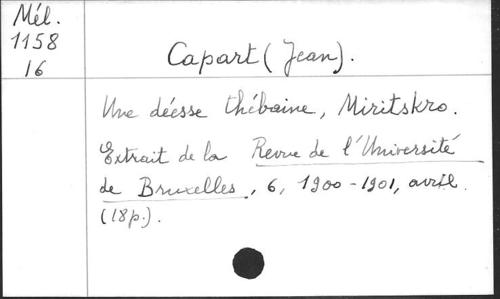 Mél.
1158
16
Capart (Jean).
Une déesse thébaine, Miritskro.
Extrait de la Revue de l'Université
de Bruxelles, 6, 1900-1901, avril.
(18p.).